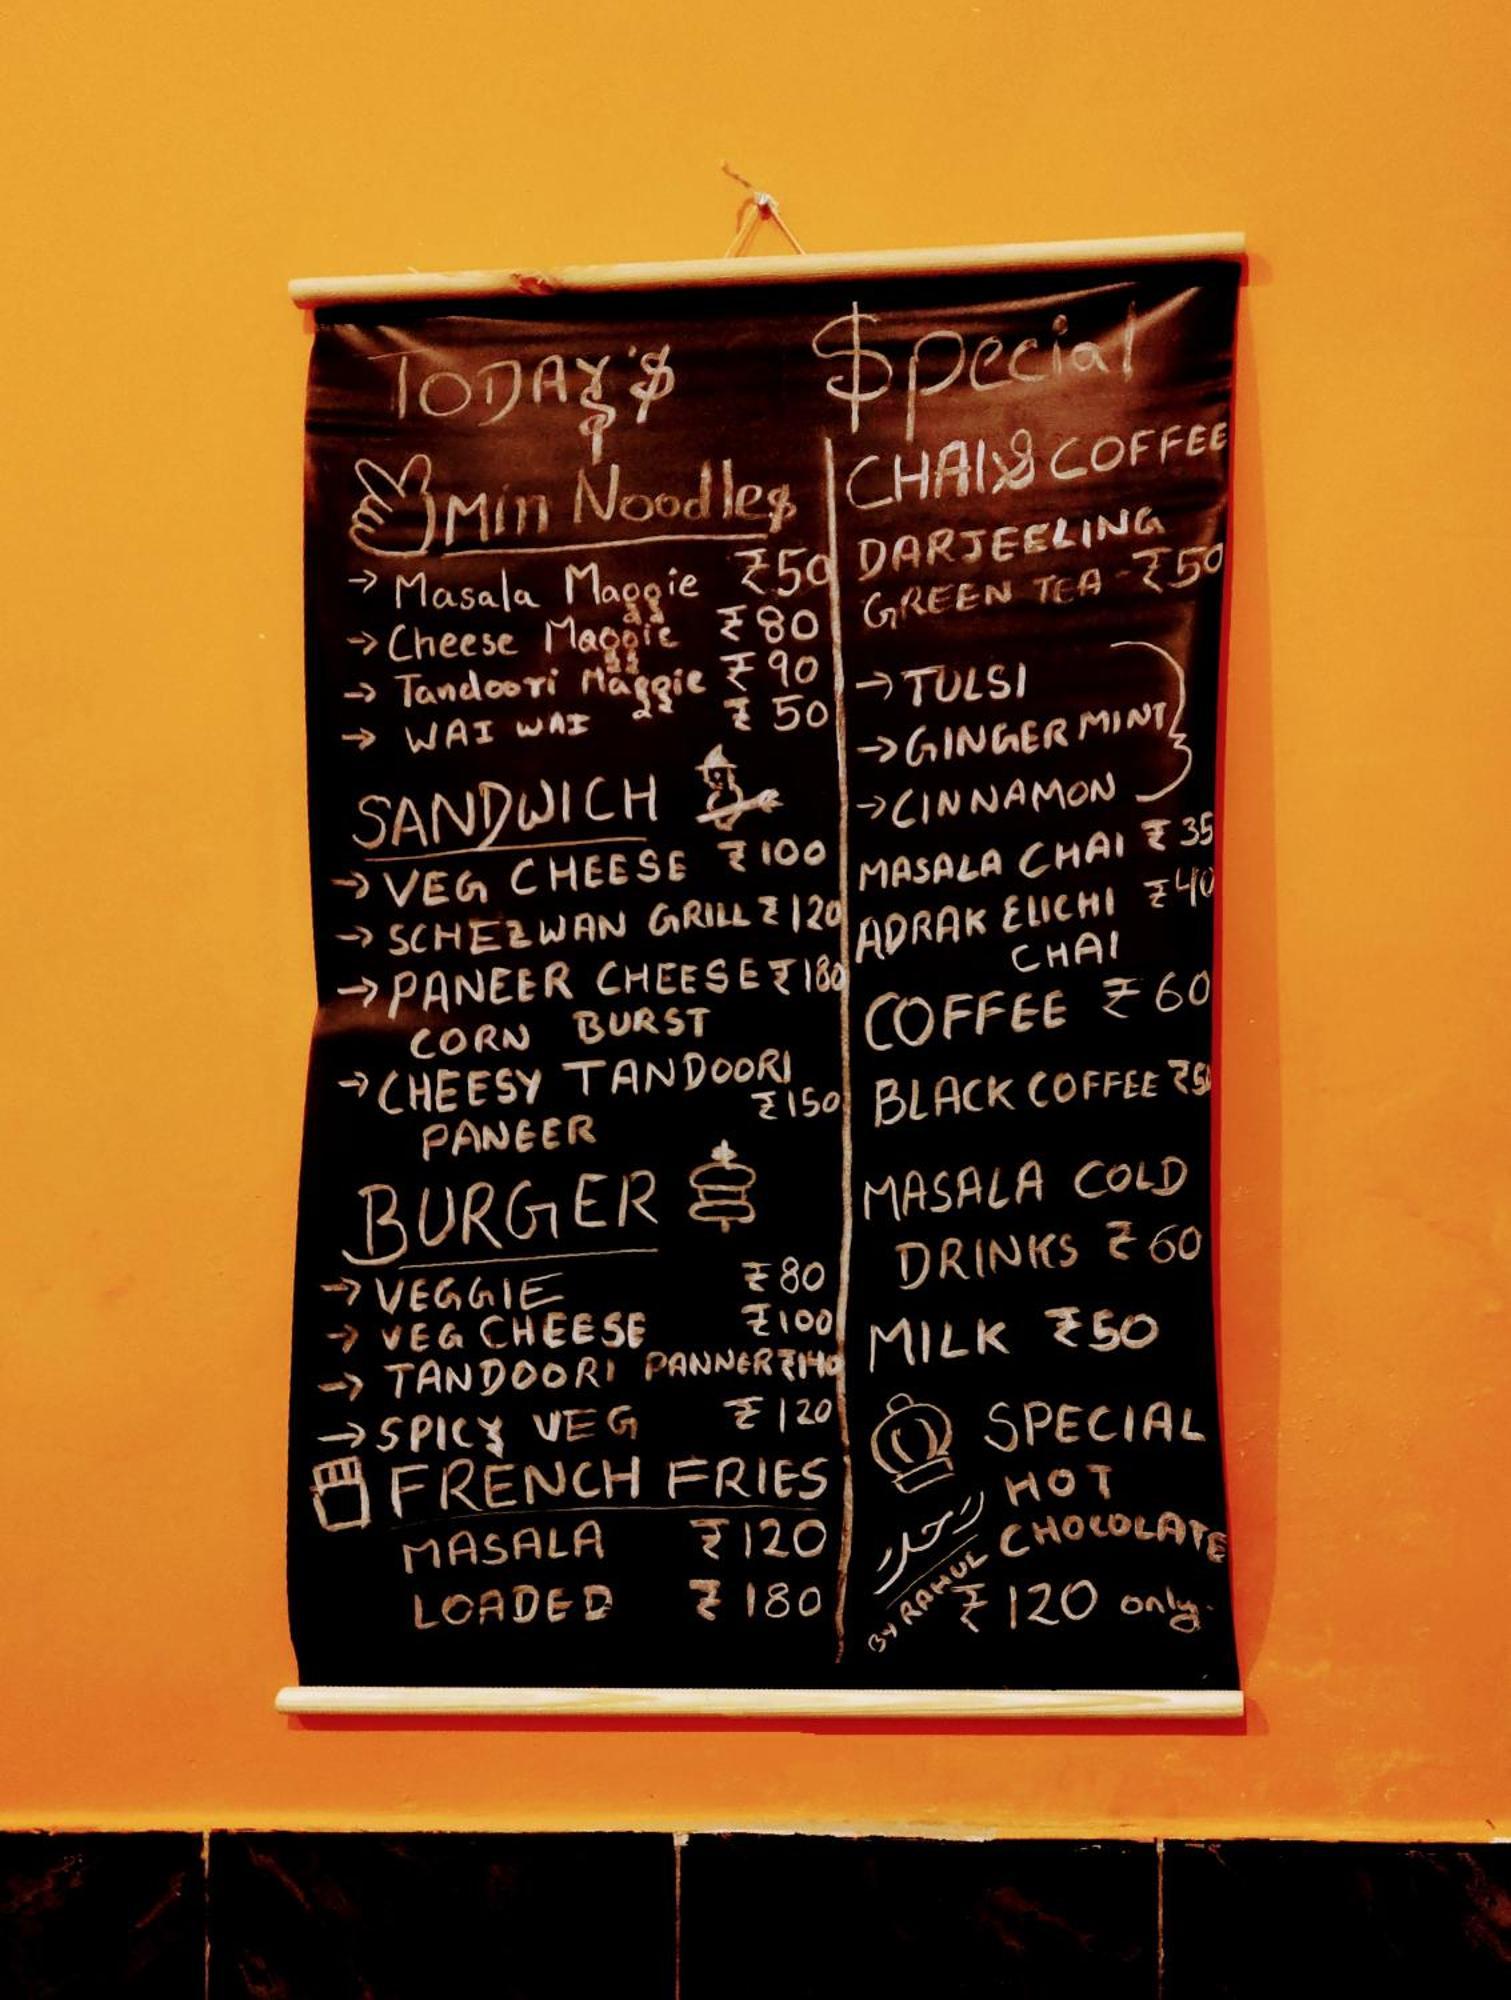 TODAY'S Special
Min Noodles
→ Masala Maggie ₹50
→ Cheese Maggie ₹80
→ Tandoori Maggie ₹90
→ WAI WAI ₹50
SANDWICH
→ VEG CHEESE ₹100
→ SCHEZWAN GRILL ₹120
→ PANEER CHEESE ₹180
CORN BURST
→ CHEESY TANDOORI
₹150
PANEER
BURGER
→ VEGGIE ₹80
→ VEG CHEESE ₹100
→ TANDOORI PANNER ₹140
→ SPICY VEG ₹120
FRENCH FRIES
MASALA ₹120
LOADED ₹180
CHAI & COFFEE
DARJEELING
GREEN TEA - ₹50
→ TULSI
→ GINGER MINT
→ CINNAMON
MASALA CHAI ₹35
ADRAK ELICHI ₹40
CHAI
COFFEE ₹60
BLACK COFFEE ₹50
MASALA COLD
DRINKS ₹60
MILK ₹50
SPECIAL
HOT
CHOCOLATE
BY RAHUL
₹120 only.